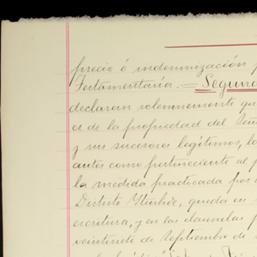 precio ó indemnización
Testamentaría.—Segund
declaran solemnemente qu
es de la propiedad del Señ
y sus sucesores legítimos, la
autos como perteneciente al p
la medida practicada por
Distrito Iturbide, queda en
escritura, y en las clausulas
veintisiete de Septiembre de